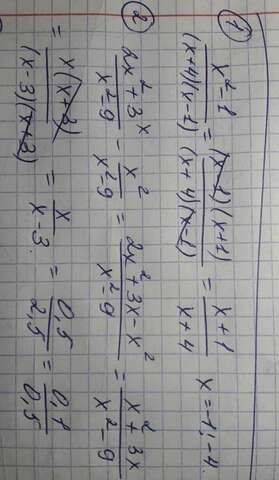 ① (x²-1)/((x+4)(x-1)) = ((x-1)(x+1))/((x+4)(x-1)) = (x+1)/(x+4) x=-1; -4
② (2x²+3x)/(x²-9) - x²/(x²-9) = (2x²+3x-x²)/(x²-9) = (x²+3x)/(x²-9)
= (x(x+3))/((x-3)(x+3)) = x/(x-3) = 0,5/2,5 = 0,1/0,5